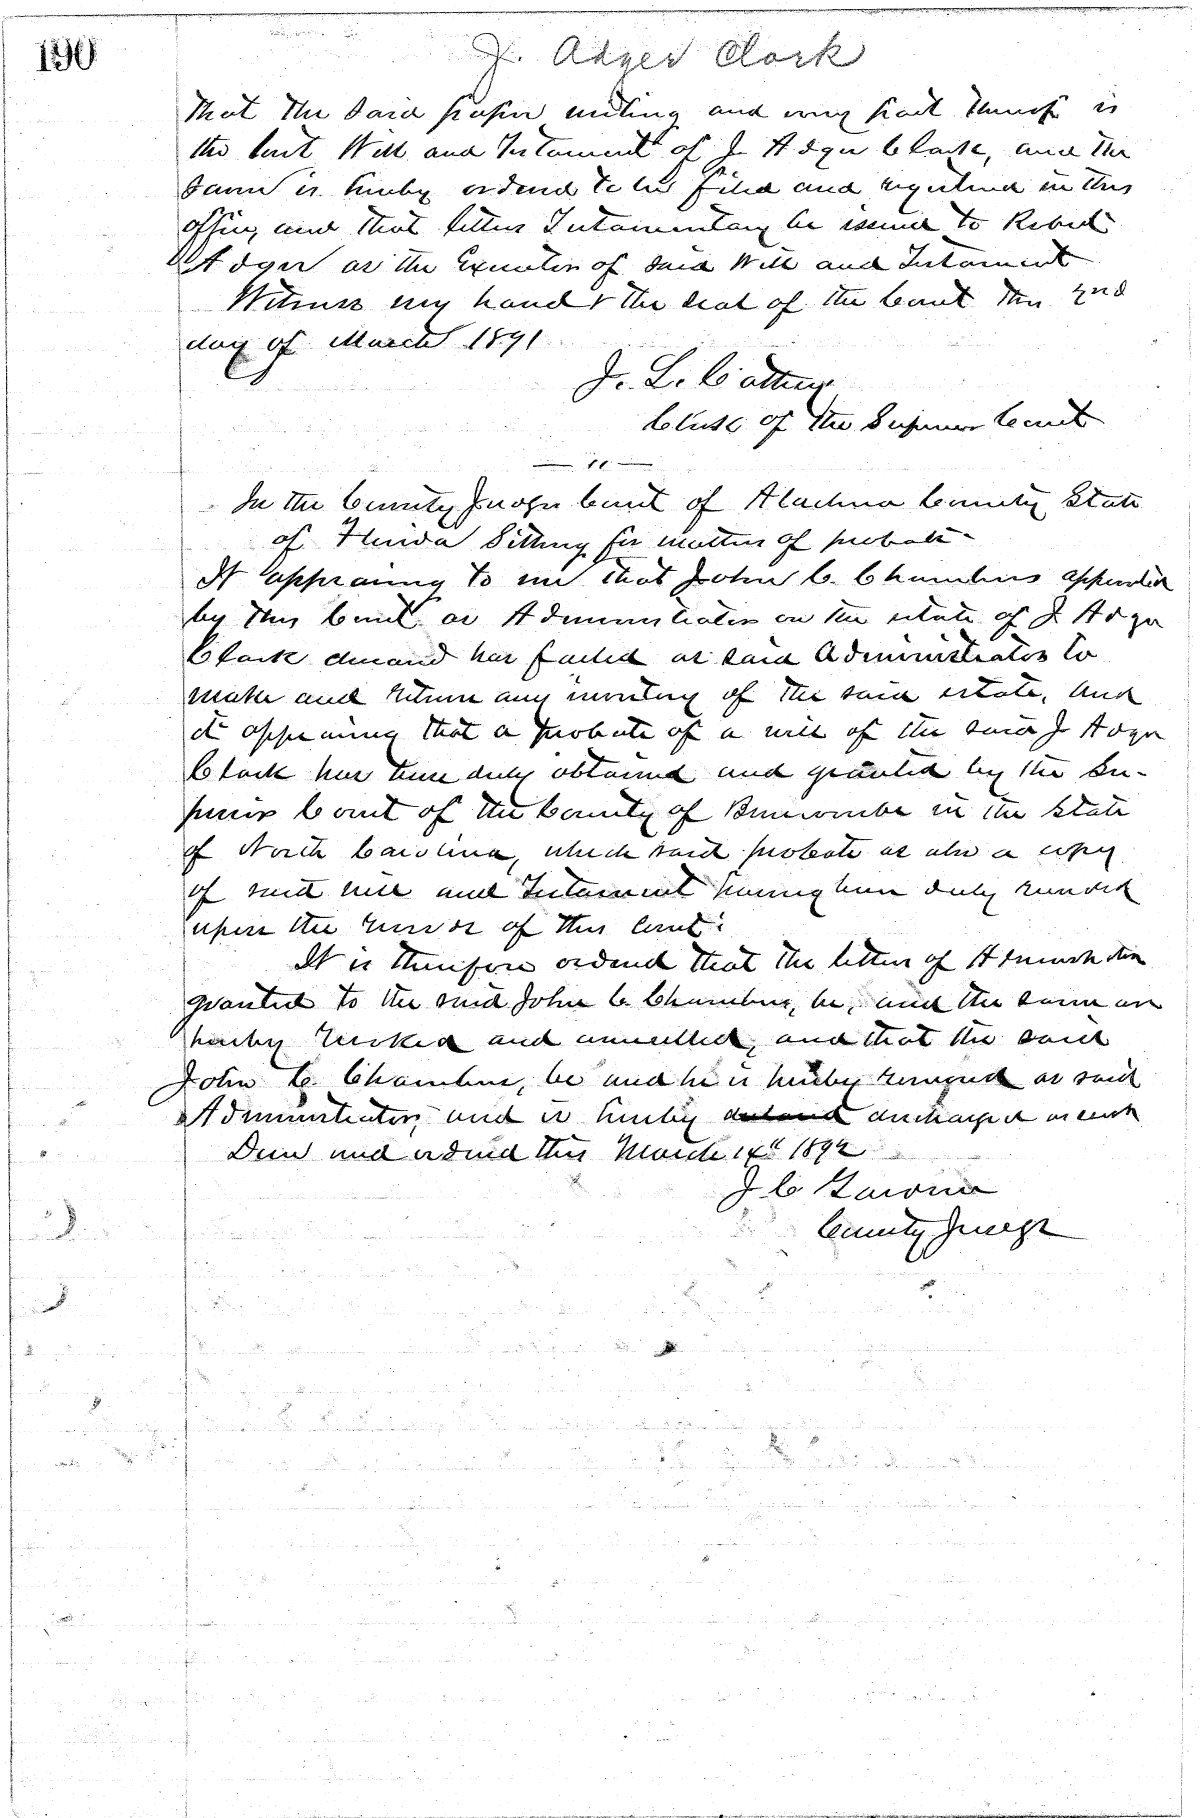 190
J. Adger Clark
that the said paper writing and every part thereof is
the last Will and Testament of J Adger Clark, and the
same is hereby ordered to be filed and registered in this
office, and that letters Testamentary be issued to Robert
Adger as the Executor of said Will and Testament
Witness my hand & the seal of the Court this 2nd
day of March 1891
J. L. Cathey
Clerk of the Superior Court
— " —
In the County Judges Court of Alachua County State
of Florida Sitting for matters of probate -
It appearing to me that John C. Chambers appointed
by this Court as Administrator on the estate of J Adger
Clark deceased has failed as said Administrator to
make and return any inventory of the said estate, and
it appearing that a probate of a will of the said J Adger
Clark has been duly obtained and granted by the Su-
perior Court of the County of Buncombe in the State
of North Carolina, which said probate as also a copy
of said will and Testament having been duly record
upon the records of this Court:
It is therefore ordered that the letters of Administration
granted to the said John C Chambers, be, and the same are
hereby revoked and annulled, and that the said
John C. Chambers, be and he is hereby removed as said
Administrator, and is hereby discharged as such
Done and ordered this March 1892
J C
County Judge